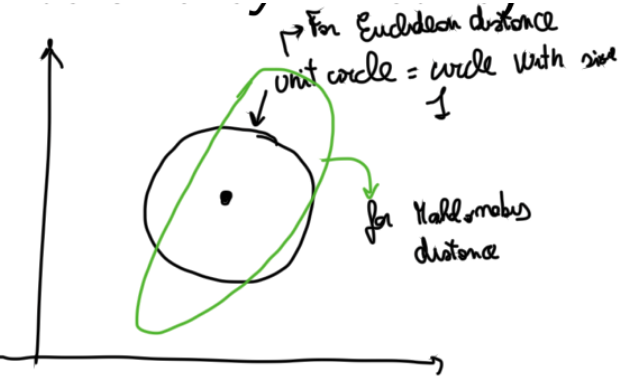 For Euclidean distance
unit circle = circle with size
1
for Mahalanobis
distance